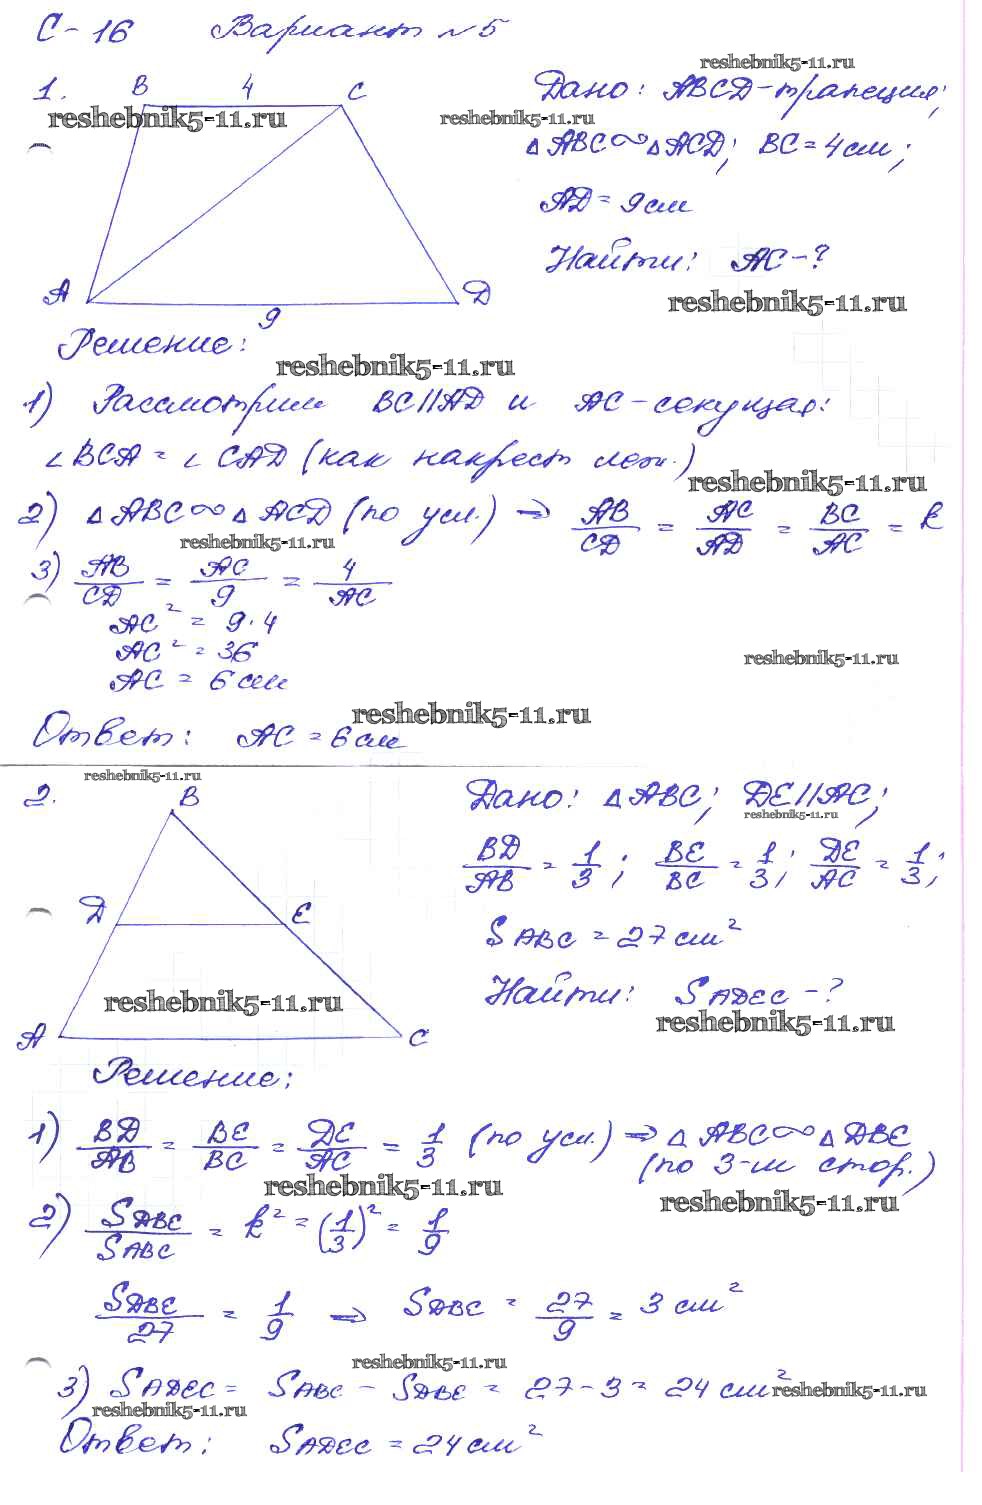 С-16 Вариант №5
reshebnik5-11.ru
1. B 4 C Дано: ABCD-трапеция;
reshebnik5-11.ru reshebnik5-11.ru
△ABC∾△ACD; BC=4см;
AD=9см
Найти: AC-?
A D
reshebnik5-11.ru
9
Решение:
reshebnik5-11.ru
1) Рассмотрим BC||AD и AC-секущая:
∠BCA=∠CAD (как накрест леж.)
reshebnik5-11.ru
2) △ABC∾△ACD (по усл.) ⇒ AB/CD = AC/AD = BC/AC = k
reshebnik5-11.ru
3) AB/CD = AC/9 = 4/AC
AC² = 9·4
AC² = 36
reshebnik5-11.ru
AC = 6см
reshebnik5-11.ru
Ответ: AC=6см
reshebnik5-11.ru
2. B Дано: △ABC; DE||AC;
reshebnik5-11.ru
BD/AB = 1/3; BE/BC = 1/3; DE/AC = 1/3;
D E
S ABC = 27см²
Найти: S ADEC -?
reshebnik5-11.ru
reshebnik5-11.ru
A C
Решение;
1) BD/AB = BE/BC = DE/AC = 1/3 (по усл.) ⇒ △ABC∾△DBE
(по 3-м стор.)
reshebnik5-11.ru
reshebnik5-11.ru
2) S DBC/S ABC = k² = (1/3)² = 1/9
S DBE/27 = 1/9 ⇒ S DBE = 27/9 = 3 см²
reshebnik5-11.ru
3) S ADEC = S ABC - S DBE = 27-3 = 24 см²
reshebnik5-11.ru
reshebnik5-11.ru
Ответ: S ADEC = 24см²